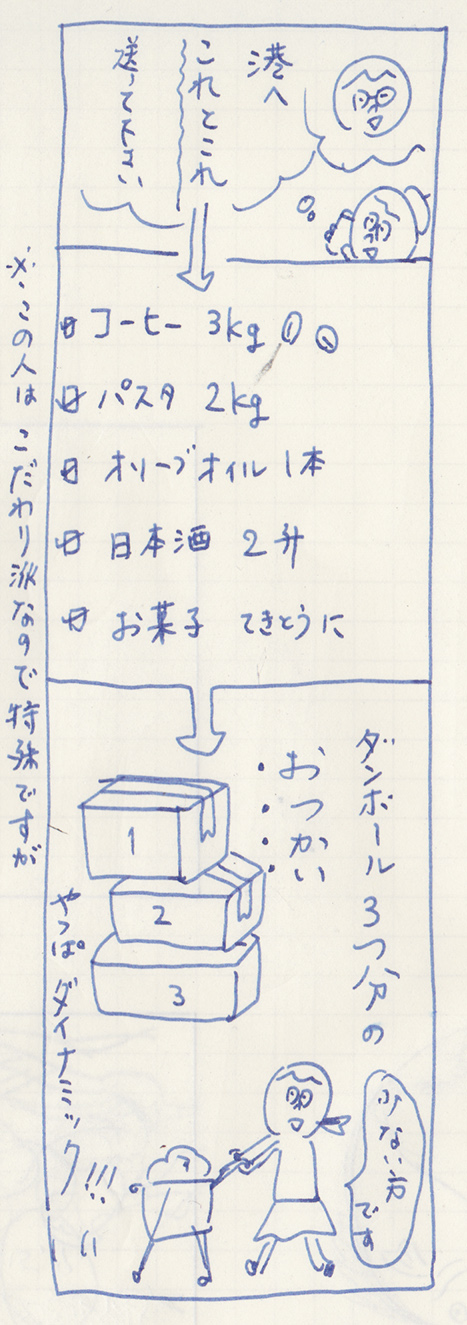 港へ
これとこれ
送って下さい
コーヒー 3kg ① ②
パスタ 2kg
オリーブオイル 1本
日本酒 2升
お菓子 てきとうに
※この人は こだわり派なので特殊ですが
ダンボール 3つ分の
おつかい
1
2
3
少ない方です
やっぱ ダイナミック!!!